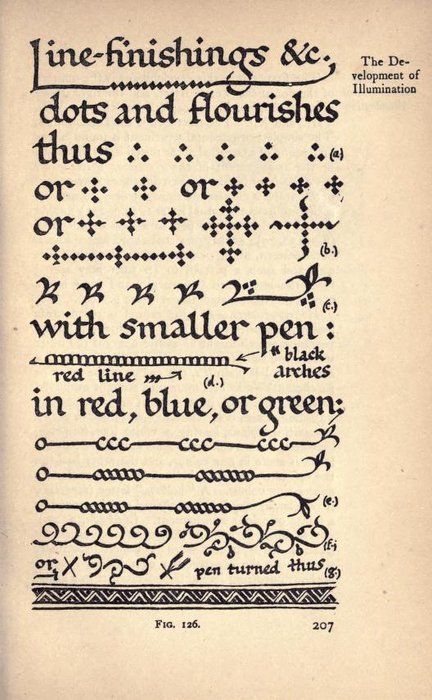 Line-finishings &c.,
dots and flourishes
thus (a)
or or
or
(b.)
(c.)
with smaller pen:
black
red line arches
(d.)
in red, blue, or green;
ccc ccc ccc
(e.)
(f.)
or, pen turned thus (g.)
The De-
velopment of
Illumination
FIG. 126. 207